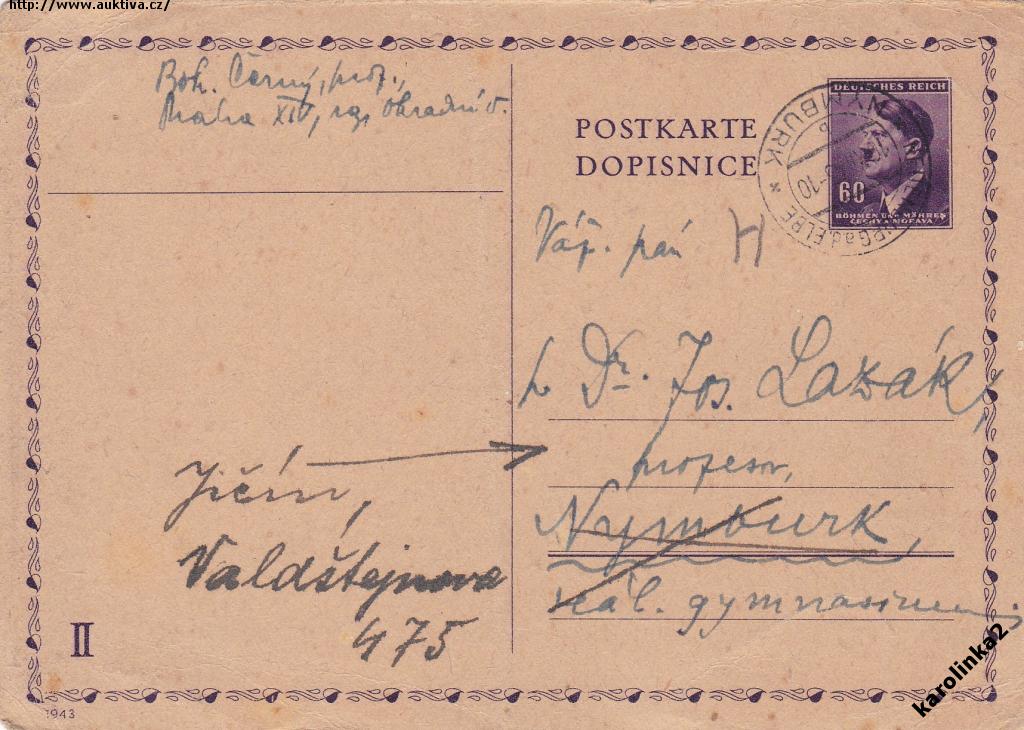 http://www.auktiva.cz/
Boh. Černý, prof.,
Praha XIV,
POSTKARTE
DOPISNICE
DEUTSCHES REICH
60
BÖHMEN UND MÄHREN
ČECHY A MORAVA
NYMBURK
ELBE
Váž. pán
Dr. Jos. Lazák,
profesor,
Nymburk,
reál. gymnasium
Jičín,
Valdštejnova
475
II
1943
karolinka2